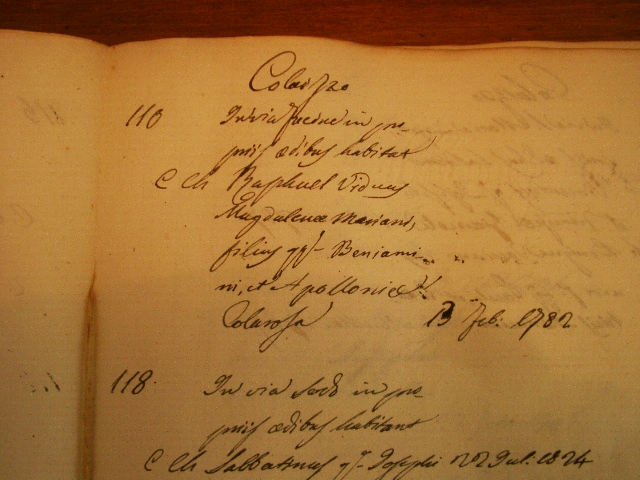 Colaizzo
110 In via in pro-
priis ædibus habitat
C Ch Raphael Viduus
Magdalenæ Mariani,
filius qq.m Beniami-
ni, et Apolloniæ
Colarossa 13 Feb: 1782
118. In via in pro-
priis ædibus habitant
C Ch Sabbatinus q.m Josephi n. 2 Jul: 1824